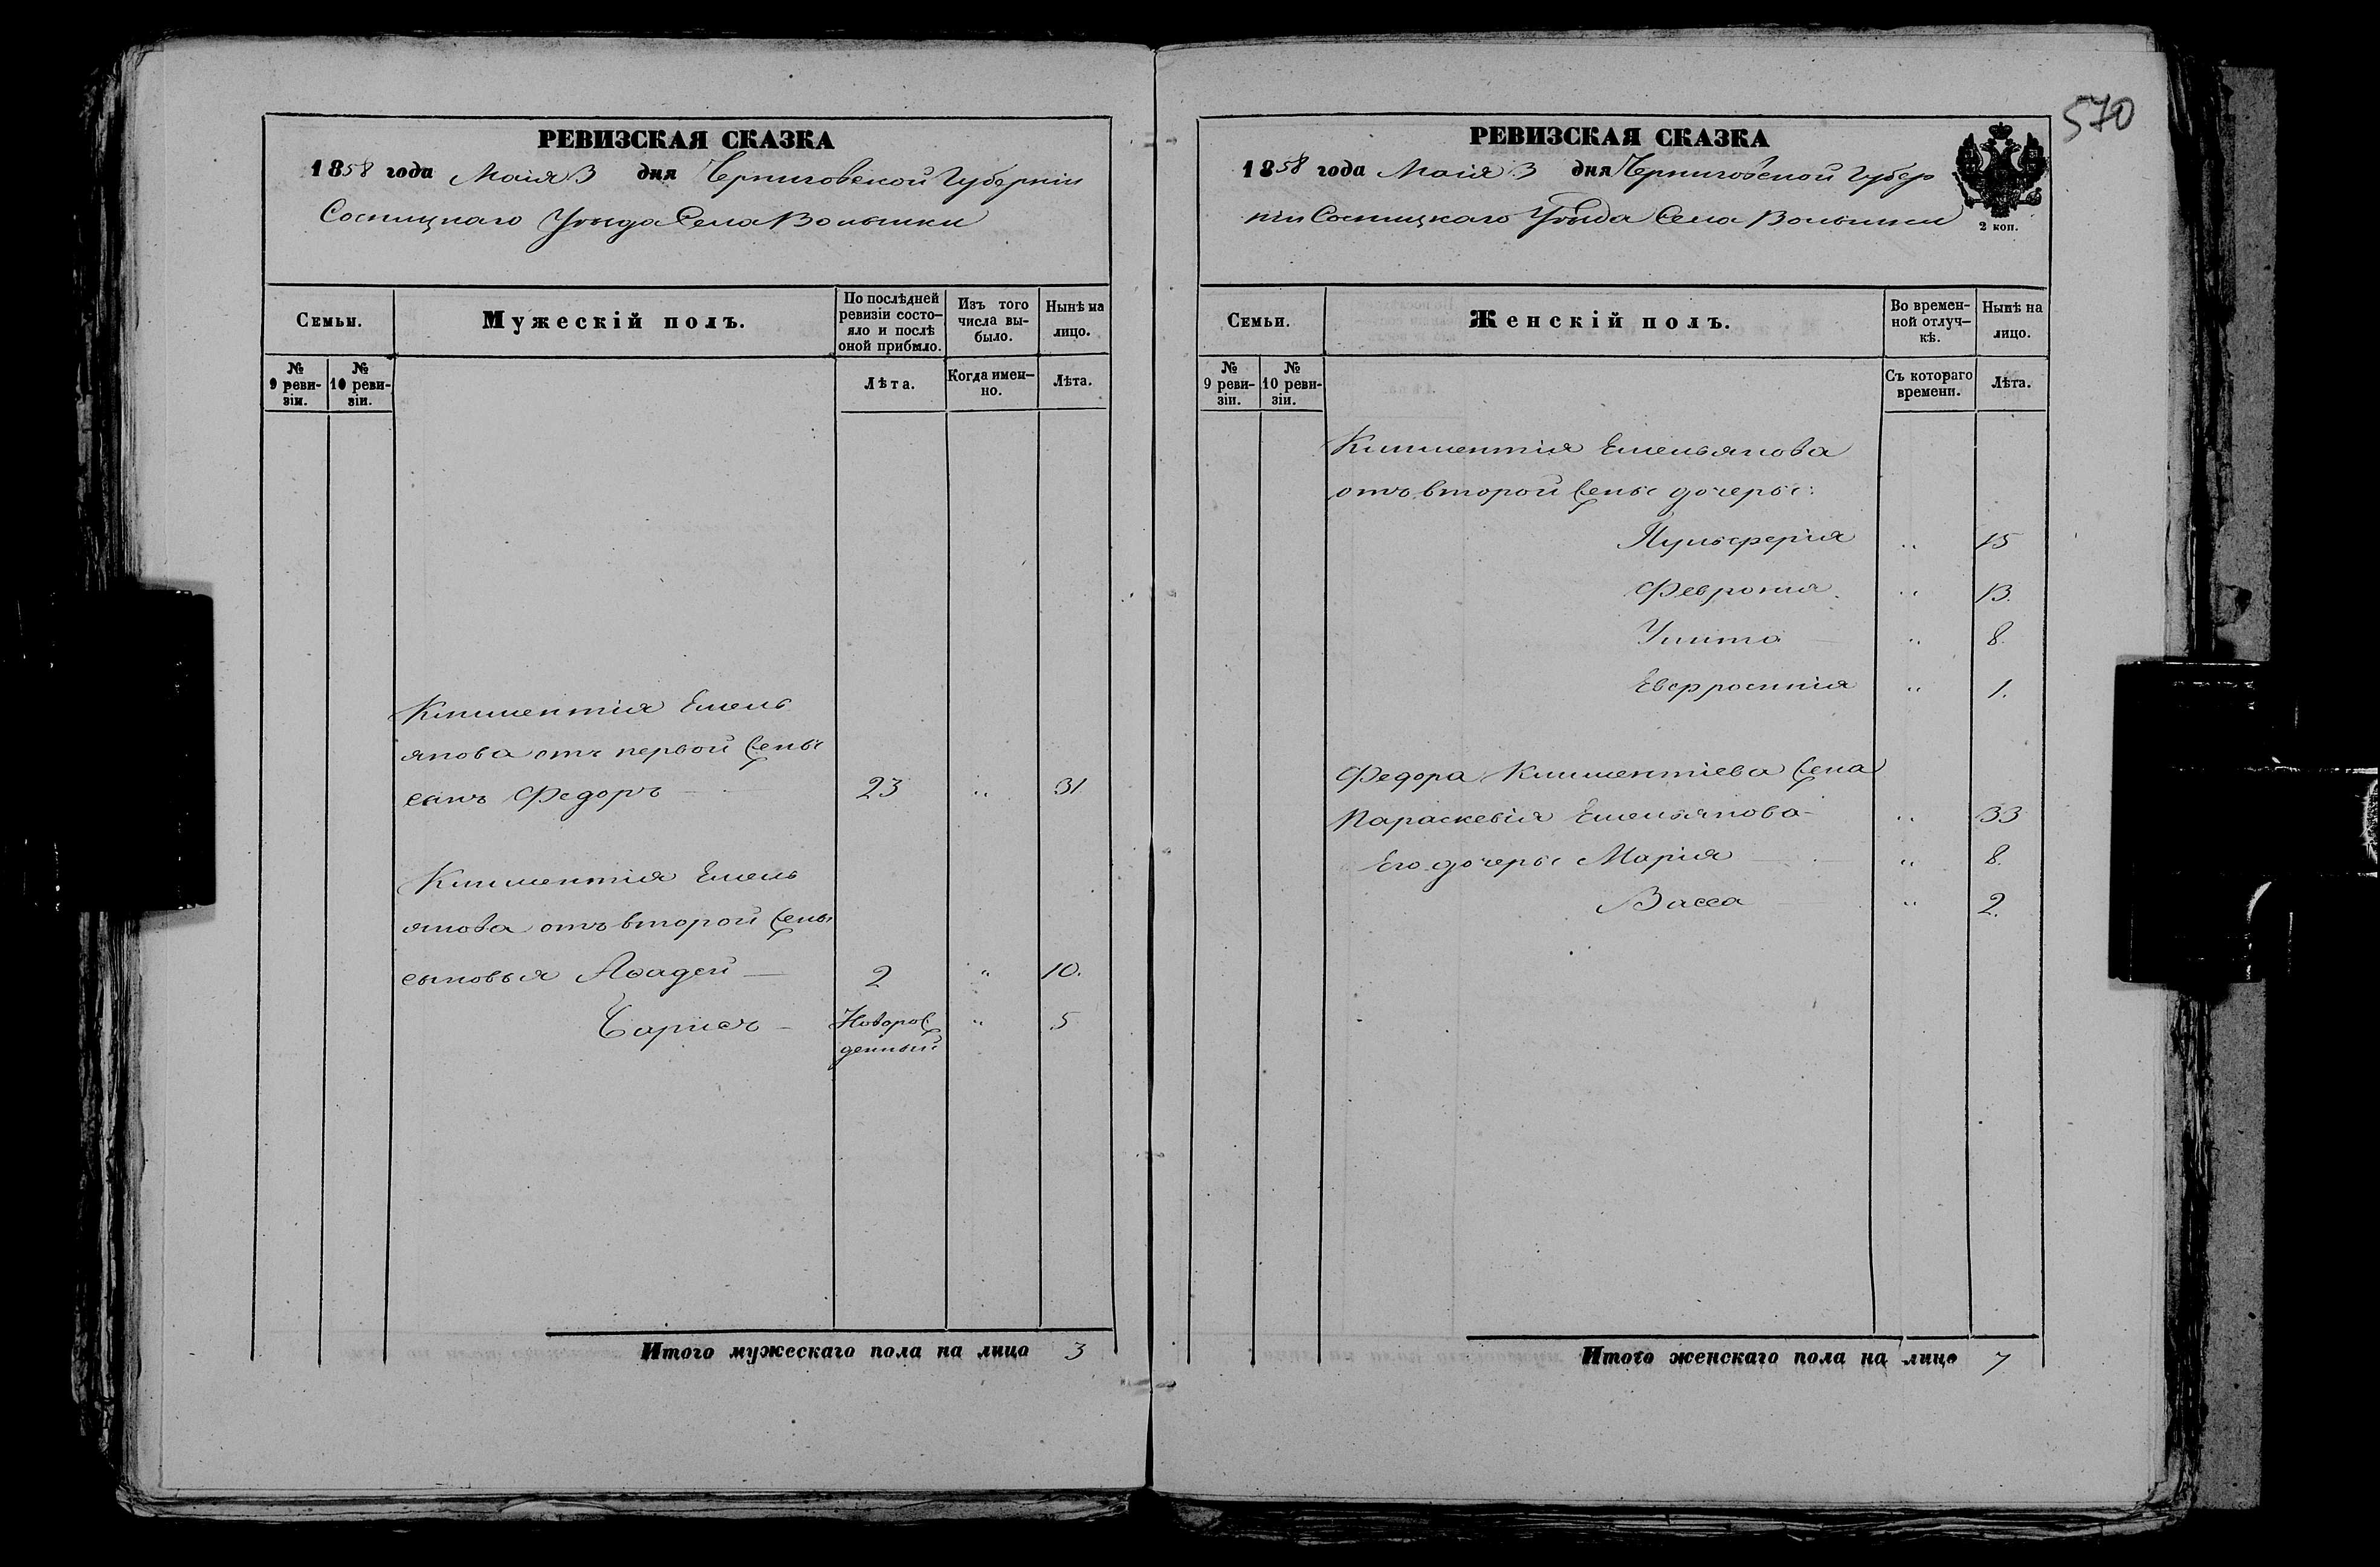 570
РЕВИЗСКАЯ СКАЗКА
1858 года Маія 3 дня Черниговской Губерніи
Сосницкаго Уѣзда Села Волынки
Семьи.
Мужескій полъ.
По послѣдней ревизіи состояло и послѣ оной прибыло.
Изъ того числа выбыло.
Нынѣ на лицо.
№ 9 ревизіи.
№ 10 ревизіи.
Лѣта.
Когда именно.
Лѣта.
Климентія Емель
янова отъ первой жены
сынъ Федоръ 23 „ 31
Климентія Емель
янова отъ второй жены
сыновья Фадей 2 „ 10.
Новорож „ 5
денный
Итого мужескаго пола на лицо 3
РЕВИЗСКАЯ СКАЗКА
1858 года Маія 3 дня Черниговской Губер
ніи Сосницкаго Уѣзда Села Волынки
2 коп.
Семьи.
Женскій полъ.
Во временной отлучкѣ.
Нынѣ на лицо.
№ 9 ревизіи.
№ 10 ревизіи.
Съ котораго времени.
Лѣта.
Климентія Емельянова
отъ второй жены дочеры:
Пульферія „ 15
Февронія „ 13.
Улита „ 8.
Евфросинія „ 1.
Федора Климентіева жена
Параскевія Емельянова „ 33
Его дочеры Марія „ 8.
Васса „ 2.
Итого женскаго пола на лицо 7